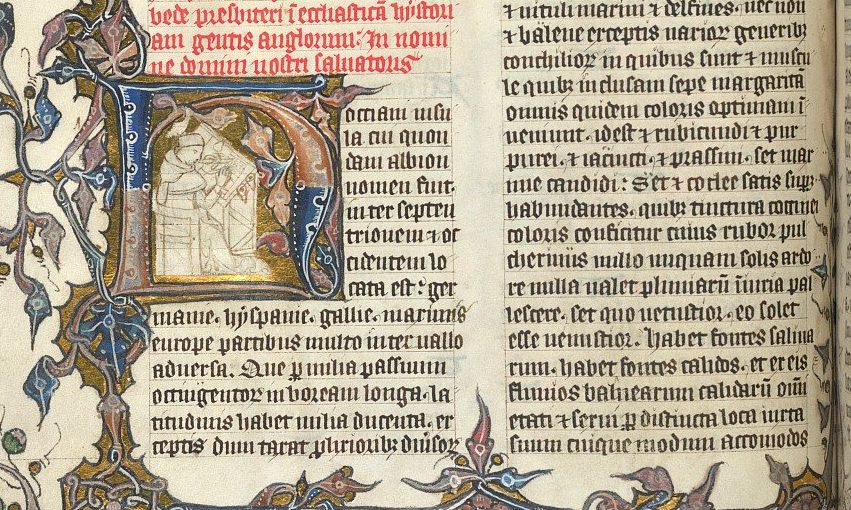 bede presbiteri ī ecclīasticā hystori
am gentis anglorum: In nomi
ne domini nostri saluatoris
occiani insu
la cui quon
dam albion
nomen fuit.
inter septen
trionem ⁊ oc
cidentem lo
cata est: ger
manie. hyspanie. gallie. maximis
europe partibus multo interuallo
aduersa. Que ꝑ milia passuum
octingentoꝝ in boream longa. la
titudinis habet milia ducenta. ex
ceptis dum taxat ꝓlixioribꝫ diuisoꝝ
⁊ uituli marini ⁊ delfines. nec non
⁊ balene exceptis varioꝝ generibꝫ
conchilioꝝ in quibus sunt ⁊ muscu
le quibꝫ inclusam sepe margaritā
omnis quidem coloris optimam ī
ueniunt. idest ⁊ rubicundi ⁊ pur
purei. ⁊ iacincti. ⁊ prassini. set mar
ime candidi: Set ⁊ coclee satis suꝑ
habundantes. quibꝫ tinctura coccinei
coloris conficitur cuius rubor pul
cherrimus nullo unquam solis ardo
re nulla ualet pluuiarū iniuria pal
lescere. set quo uetustior. eo solet
esse uenustior. habet fontes salina
rum. habet fontes calidos. et ex eis
fluuios balnearum calidarū omī
etati ⁊ sexui ꝑ distincta loca iuxta
suum cuique modum accomodos